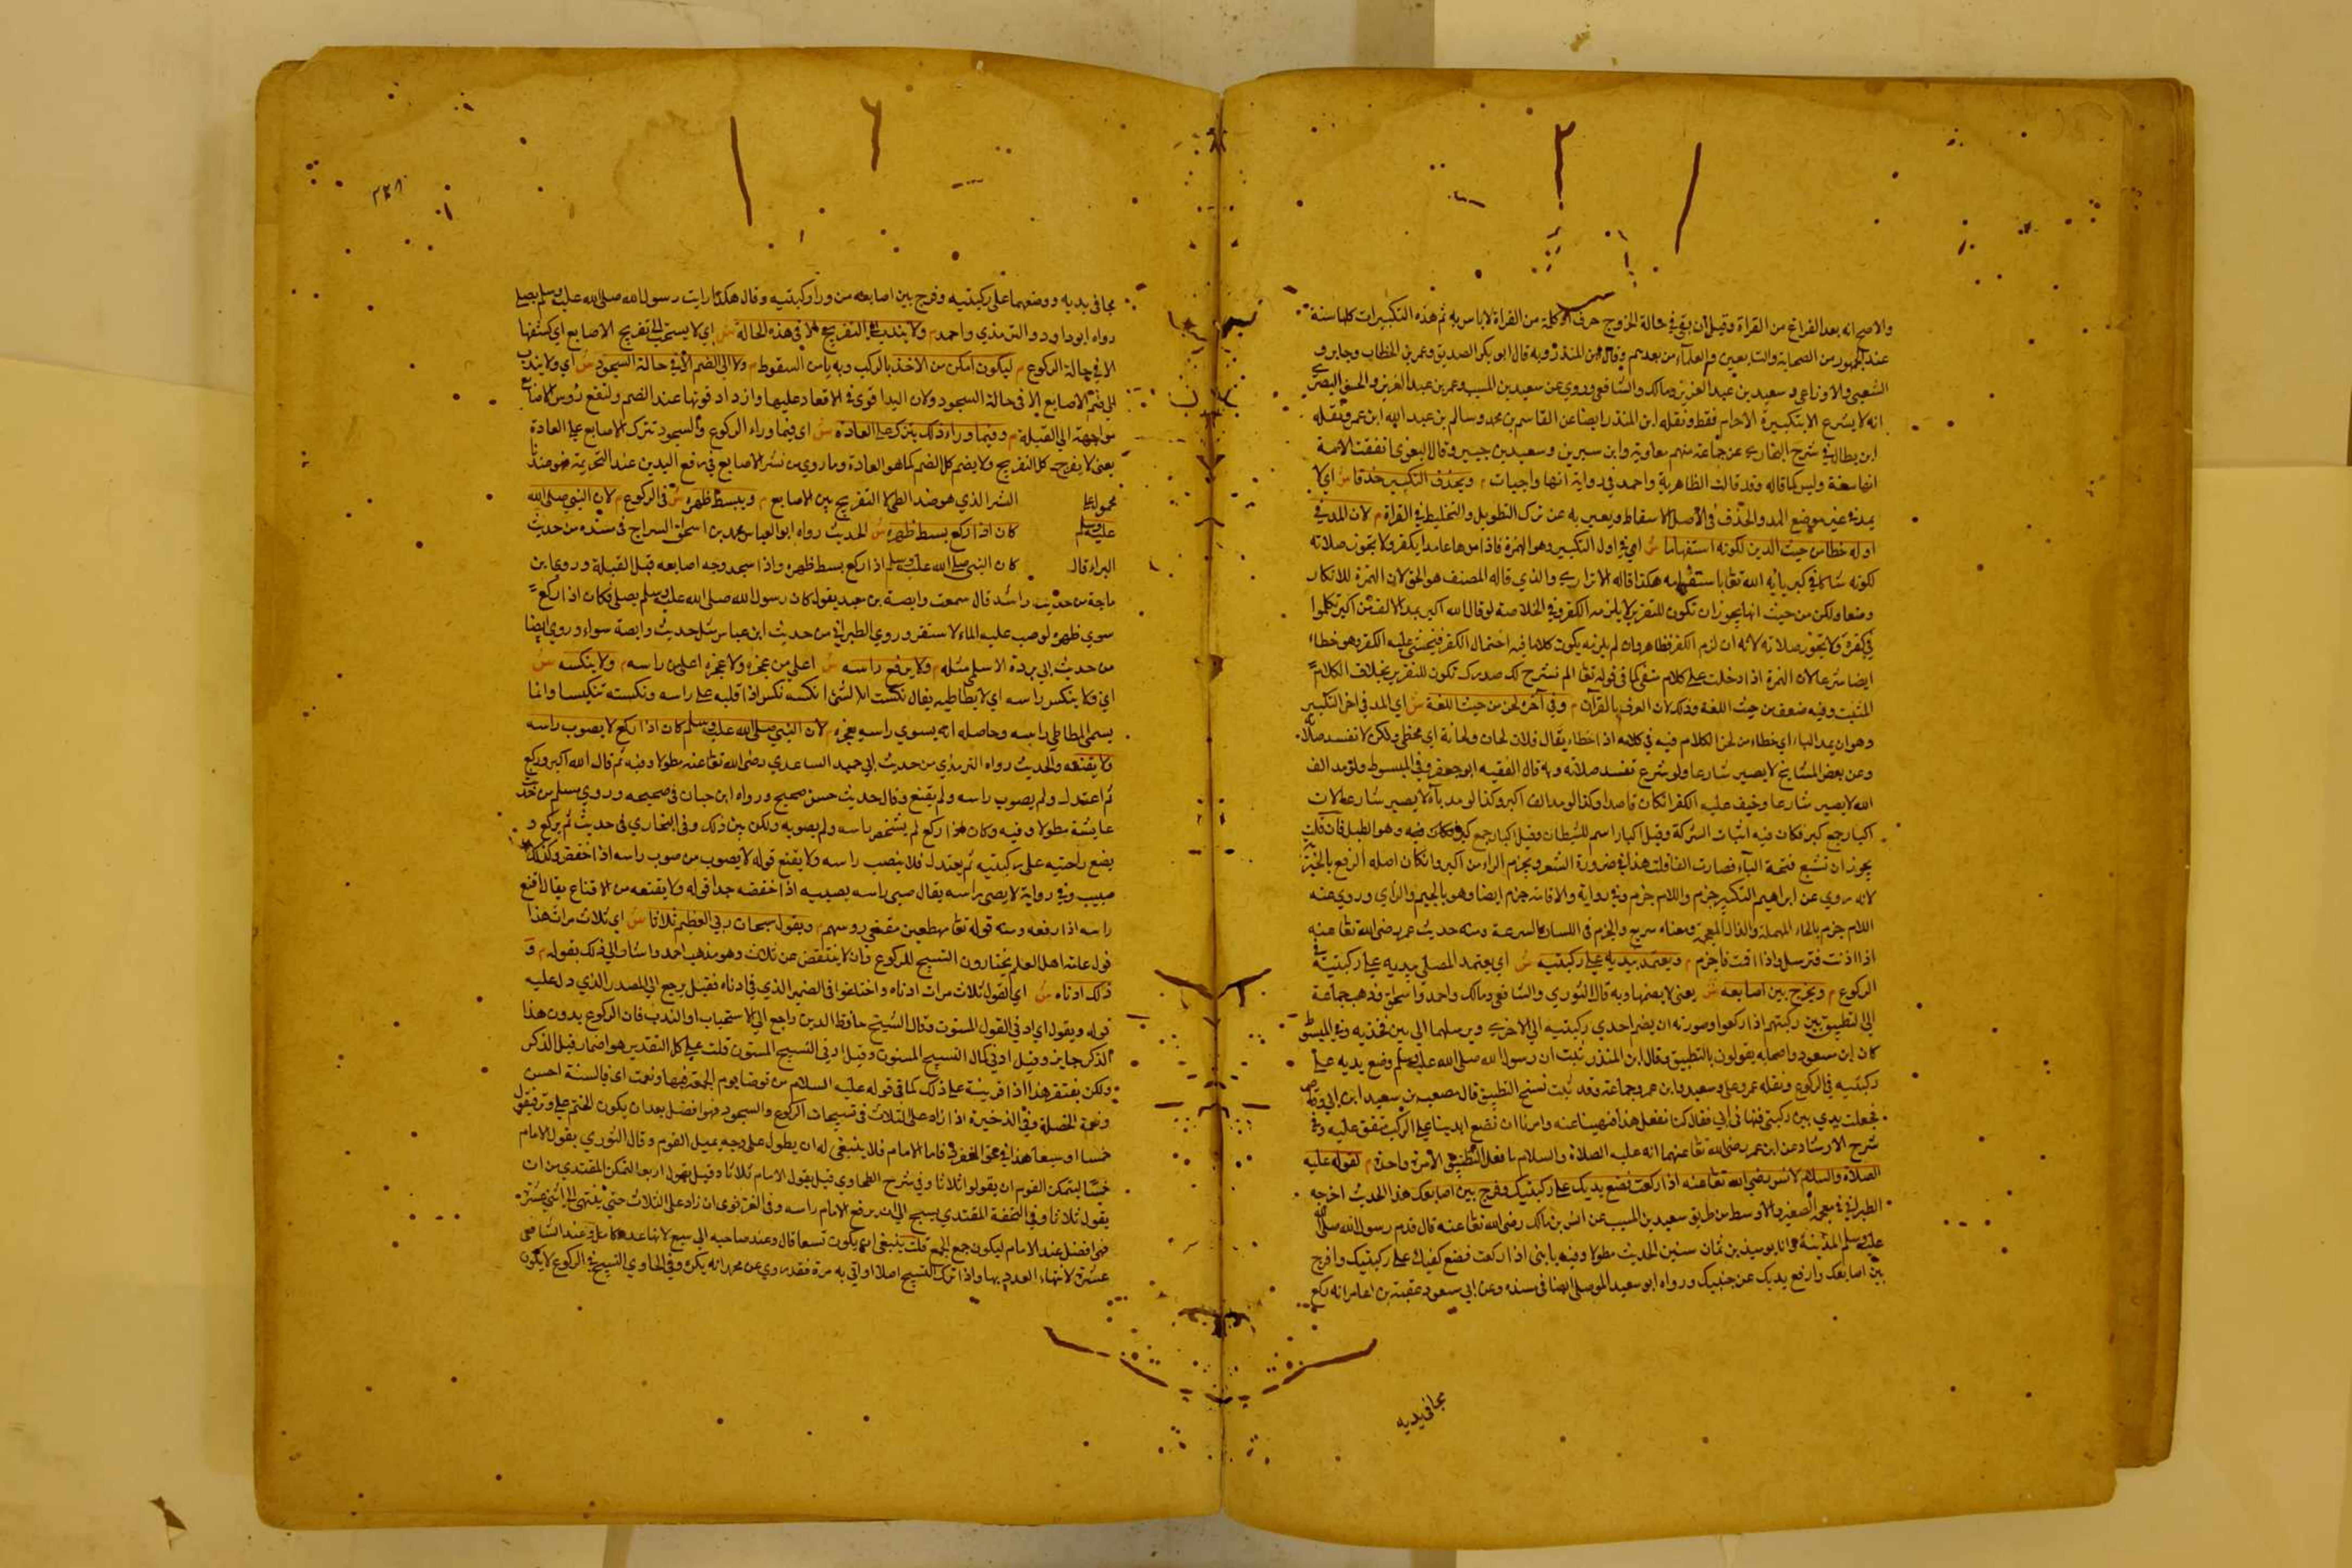 والاصح انه بعد الفراغ من القراة وقيل ان بقي في حالة الخروج حرف او كلمة من القراة لا باس به ثم هذه التكبيرات كلها سنة
عند الجمهور من الصحابة والتابعين والعلماء من بعدهم وقال ابن المنذر وبه قال ابو بكر الصديق وعمر بن الخطاب وجابر و
الشعبي والاوزاعي وسعيد بن عبد العزيز ومالك والشافعي وروي عن سعيد بن المسيب وعمر بن عبد العزيز والحسن البصري
انه لا يشرع الا تكبيرة الاحرام فقط ونقله ابن المنذر ايضا عن القاسم بن محمد وسالم بن عبد الله ابن عمر ونقله
ابن بطال في شرح البخاري عن جماعة منهم معاوية وابن سيرين وسعيد بن جبير وقال البغوي اتفقت الامة
انها سنة وليس كما قاله وقد قالت الظاهرية واحمد في رواية انها واجبات م ويحذف التكبير حذفا ش اي لا
يمد في غير موضع المد والحذف في الاصل الاسقاط ويعبر به عن ترك التطويل والتخليط في القراة م لان المد في
اوله خطا من حيث الدين لكونه استفهاما ش اي في اول التكبير وهو الهمزة فاذا مدها عامدا يكفر ولا تجوز صلاته
لكونه شاكا في كبريائه الله تعا باستفهامه هكذا قاله الاترازي والذي قاله المصنف هو الحق لان الهمزة للانكار
وضعا ولكن من حيث انها يجوز ان تكون للتقرير لا يلزمه الكفر وفي الخلاصة لو قال الله اكبر بمد الالف من اكبر تكلموا
في كفره ولا تجوز صلاته لانه ان لزم الكفر فظاهر وان لم يلزمه يكون كلاما فيه احتمال الكفر فيخشى عليه الكفر وهو خطاء
ايضا شرعا لان الهمزة اذا دخلت على كلام منفي كما في قوله تعا الم نشرح لك صدرك تكون للتقرير بخلاف الكلام
المثبت وفيه ضعف من حيث اللغة وذلك لان العرف بالقرآن م وفي آخره لحن من حيث اللغة ش اي المد في اخر التكبير
وهو ان يمد الباء اي خطاء من لحن الكلام فيه في كلامه اذا اخطاء يقال فلان لحان ولحانة اي مخطي ولكن لا تفسد صلاته
وعن بعض المشايخ لا يصير شارعا ولو شرع تفسد صلاته وبه قال الفقيه ابو جعفر وفي المبسوط ولو مد الف
الله لا يصير شارعا وخيف عليه الكفر ان كان قاصدا وكذا لو مد الف اكبر وكذا لو مد باءه لا يصير شارعا لان
اكبار جمع كبر فكان فيه اثبات الشركة وقيل اكبار اسم للشيطان وقيل اكبار جمع كبر فكان فيه وهو الطبل فان قلت
يجوز ان تشبع فتحة الباء فصارت الفا قلت هذا في ضرورة الشعر ويجزم الراء من اكبر وان كان اصله الرفع بالخبرية
لانه روي عن ابراهيم التكبير جزم والسلام جزم وفي رواية والاقامة جزم ايضا وهو بالجيم والزاي وروي عنه
السلام جزم بالحاء المهملة والذال المعجمة ومعناه سريع والجزم في اللسان السرعة ومنه حديث عمر رضي الله تعا عنه
اذا اذنت فترسل واذا اقمت فاجزم م ويعتمد بيديه علي ركبتيه ش اي يعتمد المصلي بيديه علي ركبتيه في
الركوع م ويفرج بين اصابعه ش يعني لا يضمها وبه قال الثوري والشافعي ومالك واحمد واسحاق وذهب جماعة
الي التطبيق بين ركبتهم اذا ركعوا وصورته ان يضم احدي ركبتيه الي الاخري ويرسلهما الي بين فخذيه وفي المبسوط
كان ابن مسعود واصحابه يقولون بالتطبيق وقال ابن المنذر ثبت ان رسول الله صلى الله عليه وسلم وضع يديه علي
ركبتيه في الركوع ونقله عمر وعلي وسعيد وابن عمر وجماعة وقد ثبت نسخ التطبيق قال مصعب بن سعيد ابن ابي وقاص
فجعلت يدي بين ركبتي فنهاني ابي فقال كنا نفعل هذا فنهينا عنه وامرنا ان نضع ايدينا علي الركب متفق عليه وفي
شرح الارشاد عن ابن عمر رضي الله تعا عنهما انه عليه الصلاة والسلام ما فعل التطبيق الا مرة واحدة م لقوله عليه
الصلاة والسلام لانس رضي الله تعا عنه اذا ركعت فضع يديك علي ركبتيك وفرج بين اصابعك هذا الحديث اخرجه
الطبراني في معجمه الصغير والاوسط من طريق سعيد بن المسيب عن انس بن مالك رضي الله تعا عنه قال قدم رسول الله صلى الله
عليه وسلم المدينة وانا يوميذ بن ثمان سنين الحديث مطولا وفيه يا بني اذا ركعت فضع كفيك علي ركبتيك وافرج
بين اصابعك وارفع يديك عن جنبيك ورواه ابو سعيد الموصلي ايضا في مسنده وعن ابي مسعود عقبة بن عامر انه ركع
بجافي يديه
٢٣٨
بجافي يديه ووضعهما على ركبتيه وفرج بين اصابعه من وراء ركبتيه وقال هكذا رايت رسول الله صلى الله عليه وسلم يصلي
رواه ابو داود والترمذي واحمد م ولا يندب الى التفريج الا في هذه الحالة ش اي لا يستحب الى تفريج الاصابع اي كشفها
الا في حالة الركوع م ليكون امكن من الاخذ بالركب وبه يامن السقوط م ولا الى الضم الا في حالة السجود ش اي ولا يندب
الى ضم الاصابع الا في حالة السجود ولان اليد اقوى في الاقعاد عليها وازداد قوتها عند الضم ولتقع رؤس الاصابع
مواجهة الى القبلة م وفيما وراء ذلك يترك على العادة ش اي فيما وراء الركوع والسجود تترك الاصابع علي العادة
يعني لا يفرج كل التفريج ولا يضم كل الضم كما هو العادة وما روي من نشر الاصابع في رفع اليدين عند التحريمة فهو عندنا
محمول علي النشر الذي هو ضد الطي لا التفريج بين الاصابع م ويبسط ظهره ش في الركوع م لان النبي صلى الله
عليه وسلم كان اذا ركع بسط ظهره ش الحديث رواه ابو العباس محمد بن اسحق السراج في مسنده من حديث
البراء قال كان النبي صلى الله عليه وسلم اذا ركع بسط ظهره واذا سجد وجه اصابعه قبل القبلة وروي ابن
ماجة من حديث راشد قال سمعت وابصة بن معبد يقول كان رسول الله صلى الله عليه وسلم يصلي فكان اذا ركع
سوي ظهره لو صب عليه الماء لاستقر وروي الطبراني من حديث ابن عباس مثل حديث وابصة سواء وروي ايضا
من حديث ابي بردة الاسلمي مثله م ولا يرفع راسه ش اعلي من عجزه ولا عجزه اعلى من راسه م ولا ينكسه ش
اي ولا ينكس راسه اي لا يطاطيه يقال نكست الشئ انكسه نكسا اذا قلبه علي راسه ونكسته تنكيسا وانما
يسمى المطاطي راسه وحاصله انه يسوي راسه بعجزه م لان النبي صلى الله عليه وسلم كان اذا ركع لا يصوب راسه
ولا يقنعه والحديث رواه الترمذي من حديث ابي حميد الساعدي رضى الله تعا عنه مطولا وفيه ثم قال الله اكبر وركع
ثم اعتدل ولم يصوب راسه ولم يقنع وقال حديث حسن صحيح ورواه ابن حبان في صحيحه وروي مسلم من حديث
عايشة مطولا وفيه وكان اذا ركع لم يشخص راسه ولم يصوبه ولكن بين ذلك وفي البخاري في حديث ثم يركع و
يضع راحتيه على ركبتيه ثم يعتدل فلا ينصب راسه ولا يقنع قوله لا يصوب من صوب راسه اذا اخفض وكذلك
صبب وفي رواية لا يصبي راسه يقال صبى راسه يصبيه اذا اخفضه جدا قوله ولا يقنعه من الاقناع يقال اقنع
راسه اذا رفعه ومنه قوله تعا مهطعين مقنعي روسهم م ويقول سبحان ربي العظيم ثلاثا ش اي ثلاث مرات هذا
قول عامة اهل العلم يختارون التسبيح للركوع وان لا ينتقص عن ثلاث وهو مذهب احمد واشار الى ذلك بقوله م و
ذلك ادناه ش اي القول ثلاث مرات ادناه واختلفوا في الضمير الذي في ادناه فقيل يرجع الى المصدر الذي دل عليه
قوله ويقول اي ادنى القول المسنون وقال الشيخ حافظ الدين راجع الي الاستحباب او الندب فان الركوع بدون هذا
الذكر جايز وقيل ادنى كمال التسبيح المسنون وقيل ادنى التسبيح المسنون قلت علي كل التقدير هو اضمار قبل الذكر
ولكن يفتقر هذا اذا قرينة علي ذلك كما في قوله عليه السلام من توضا يوم الجمعة فبها ونعمت اي فبالسنة احسن
ونعمة الخصلة وفي الذخيرة اذا زاد على الثلاث في تسبيحات الركوع والسجود فهو افضل بعد ان يكون الختم على وتر فيقول
خمسا او سبعا هذا في حق المنفرد فاما الامام فلا ينبغي له ان يطول على وجه يميل القوم وقال الثوري يقول الامام
خمسا ليتمكن القوم ان يقولوا ثلاثا وفي شرح الطحاوي قيل يقول الامام ثلاثا وقيل يقول اربعا لتمكن المقتدي من ان
يقول ثلاثا وفي التحفة المقتدي يسبح الى ان يرفع الامام راسه وفي الغزنوي ان زاد على الثلاث حتي ينتهي الى اثني عشرة
فهو افضل عند الامام ليكون جمع الجمع قلت ينبغي ان يكون تسعا قال وعند صاحبيه الي سبع لانها عدد كامل وعند الشافعي
عشرة لانتهاء العدد بها واذا ترك التسبيح اصلا او اتي به مرة فقد روي عن محمد انه يكره وفي الحاوي التسبيح في الركوع لا يكون